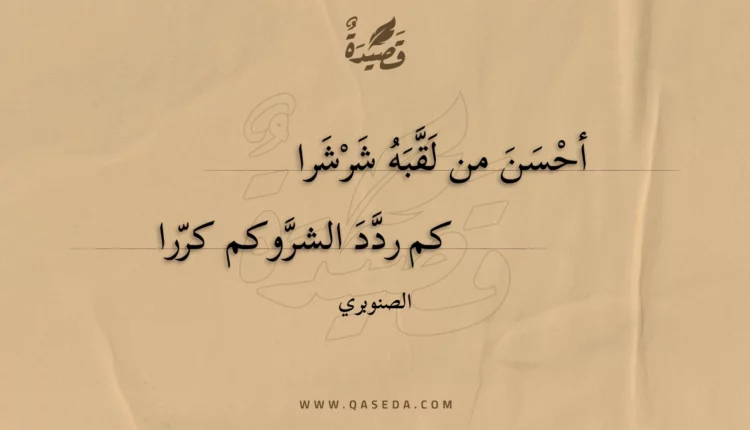 قَصِيْدَةٌ
أحْسَنَ من لَقَّبَهُ شَرْشَرا
كم ردَّدَ الشرَّوكم كرّرا
الصنوبري
WWW.QASEDA.COM